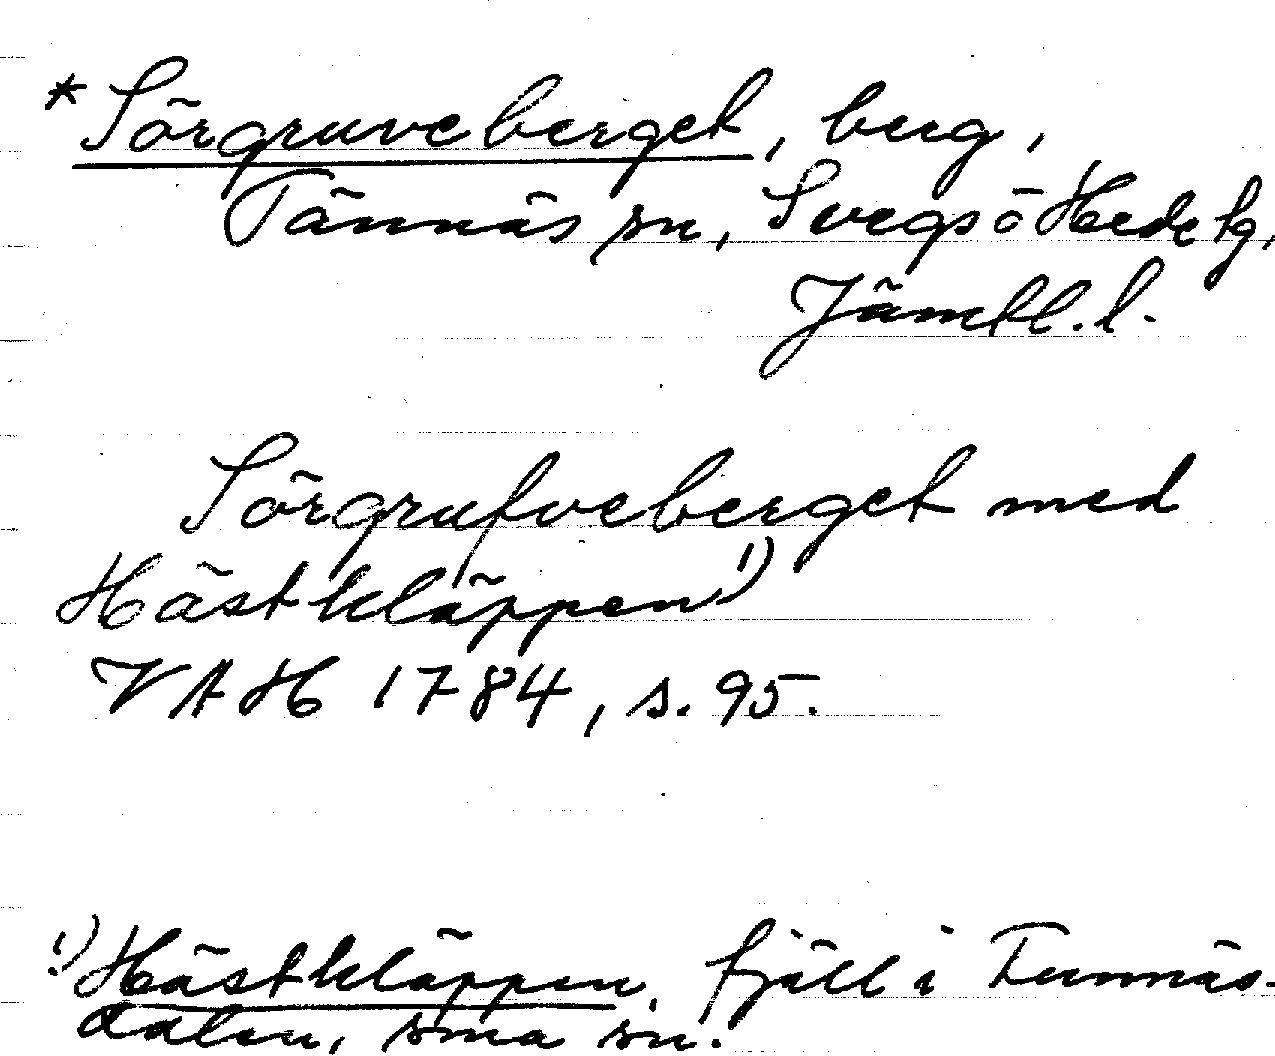 *Sörgruveberget, berg,
Tännäs sn, Svegs o Hede tg,
Jämtl. l.
Sörgrufveberget med
Hästkläppen 1)
VAH 1784, s. 95.
1) Hästkläppen, fjäll i Funnäs-
dalen, sma sn.